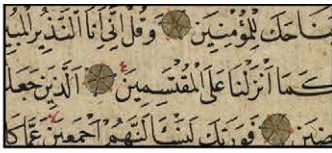 جَنَاحَكَ لِلْمُؤْمِنِينَ ۝ وَقُلْ اِنِّي اَنَا النَّذِيرُ الْمُبِين
كَمَا اَنْزَلْنَا عَلَى الْمُقْتَسِمِينَ ۝ الَّذِينَ جَعَلُ
ضِينَ ۝ فَوَرَبِّكَ لَنَسْأَلَنَّهُمْ اَجْمَعِينَ عَمَّا كَا